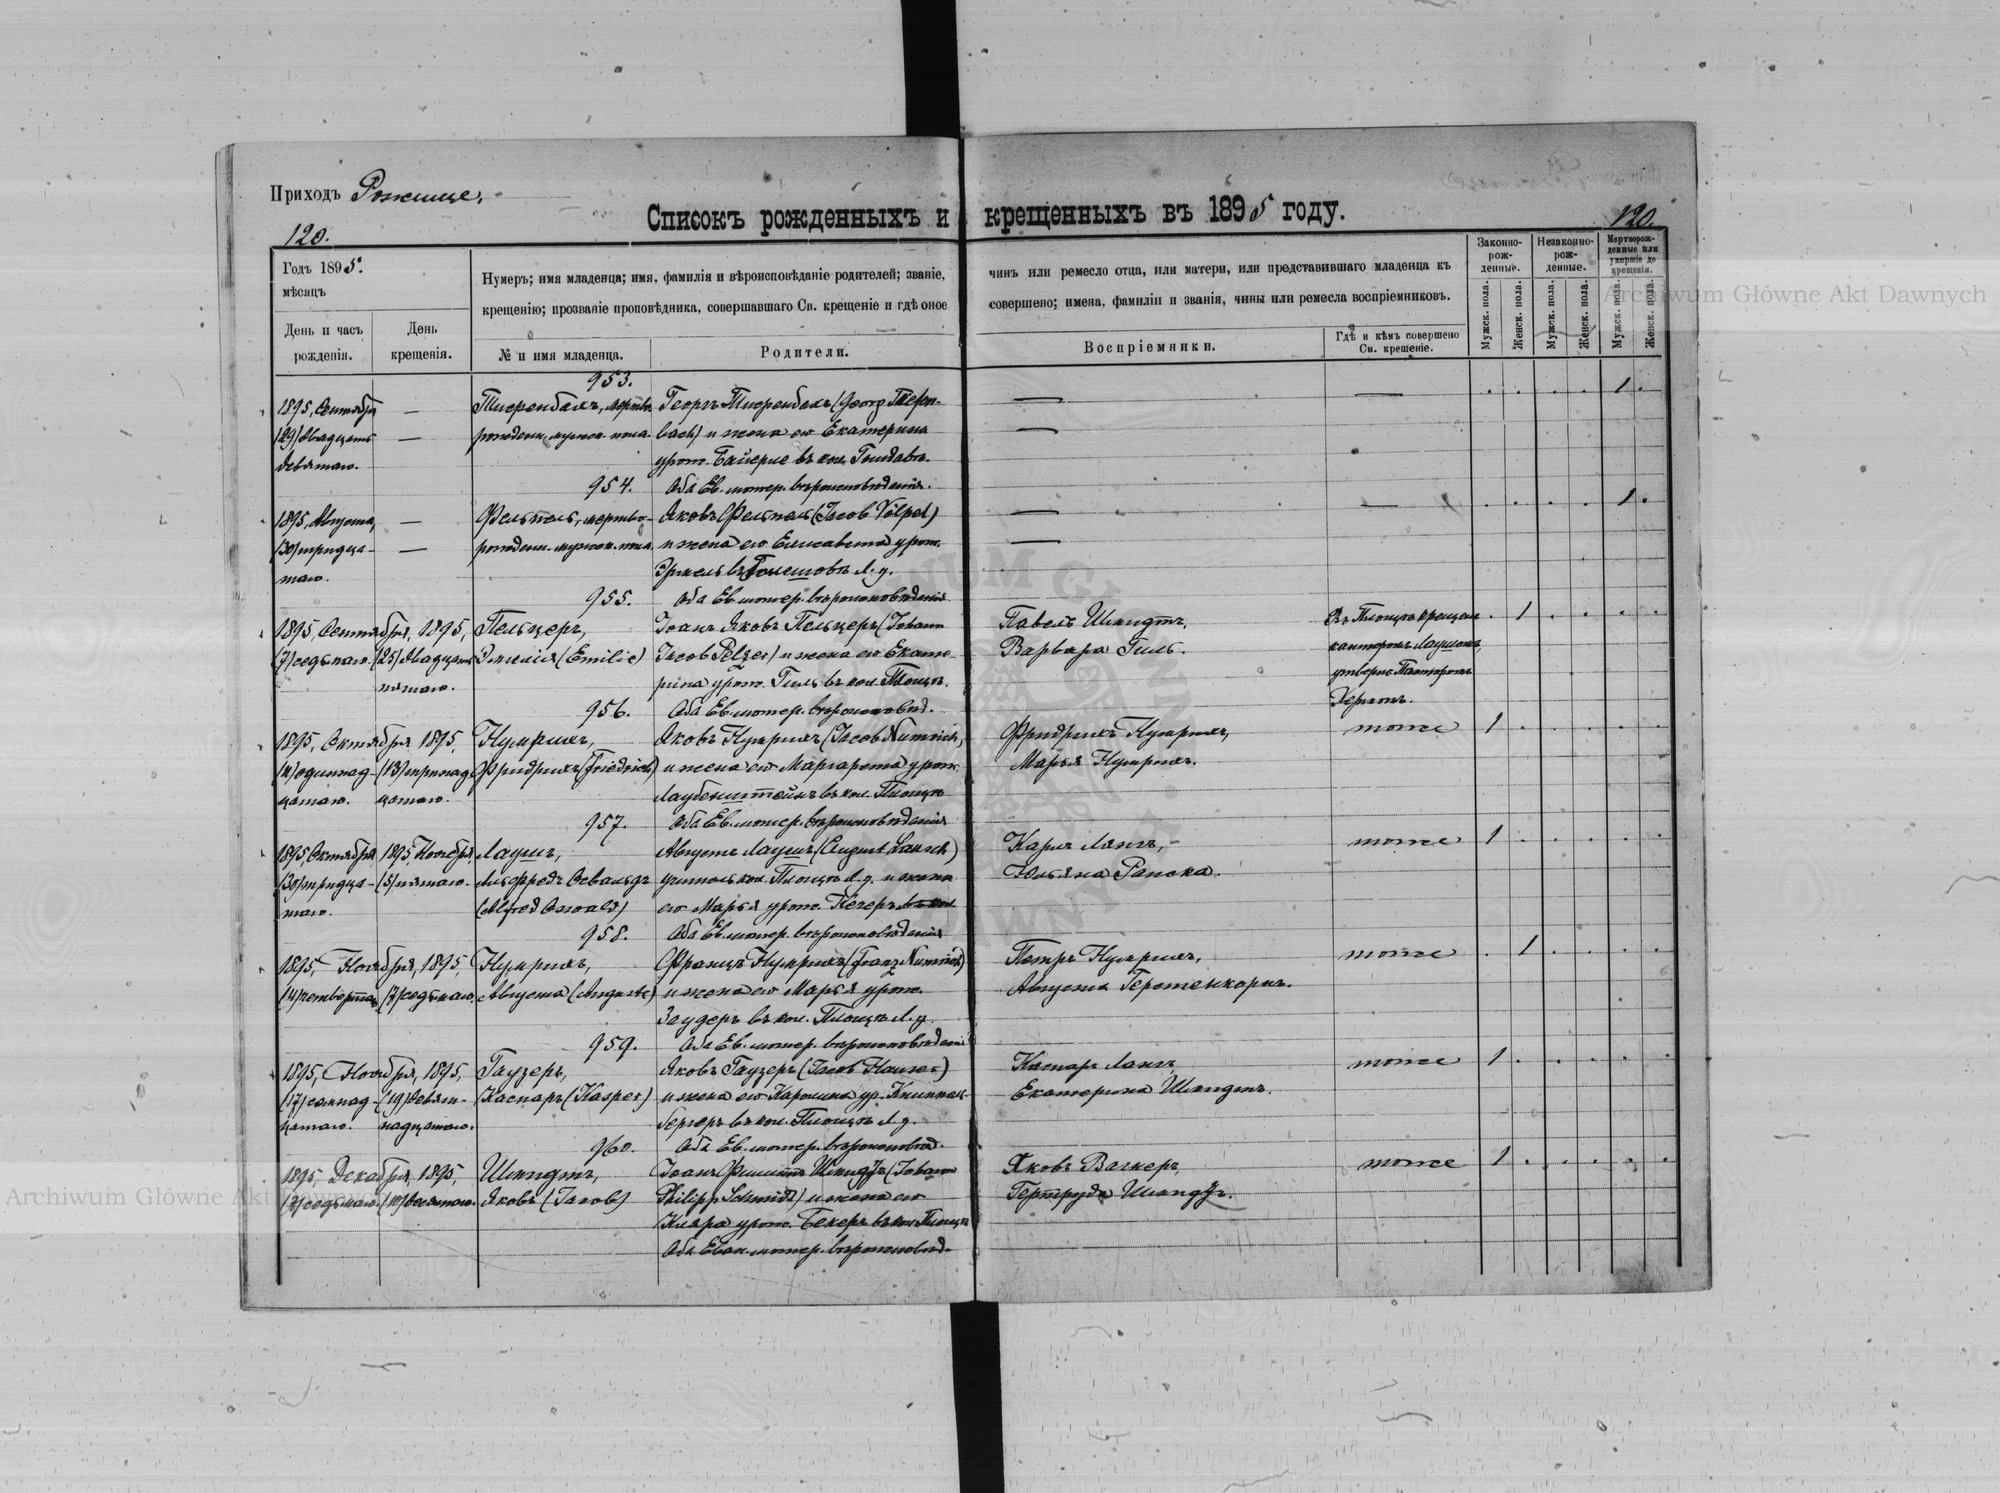 Приходъ Рожище.
Списокъ рожденныхъ и крещенныхъ въ 1895 году.
120.
120.
Годъ 1895.
мѣсяцъ
День и часъ рожденія.
День крещенія.
Нумеръ; имя младенца; имя, фамилія и вѣроисповѣданіе родителей; званіе, чинъ или ремесло отца, или матери, или представившаго младенца къ
крещенію; прозваніе проповѣдника, совершавшаго Св. крещеніе и гдѣ оное совершено; имена, фамиліи и званія, чины или ремесла воспріемниковъ.
№ и имя младенца.
Родители.
Воспріемники.
Гдѣ и кѣмъ совершено Св. крещеніе.
Законно-рож-денные.
Незаконно-рож-денные.
Мертворож-денные или умершіе до крещенія.
Мужск. пола.
Женск. пола.
Мужск. пола.
Женск. пола.
Мужск. пола.
Женск. пола.
953.
1895, Сентября — мертво- Георгъ (Georg
(29) двадцать — рожденн. мужск. пола. bach) и жена его Екатерина
девятаго. урож. въ кол.
954. Оба Ев. лютер. вѣроисповѣданія.
1895, Августа, — Фельпель, мертво- Яковъ Фельпель (Jacob Völpel)
(30) тридца- — рожденн. мужск. пола. и жена его Елисавета урож.
таго. въ Л. у.
955. Оба Ев. лютер. вѣроисповѣданія
1895, Сентября, 1895, Пельцеръ, Іоанъ Яковъ Пельцеръ (Johann Павелъ Шмидтъ, Въ Плоцкѣ крещен 1
(7) седьмаго. (25) двадцать Эмилія (Emilie) Jacob Pelzer) и жена его Екате- Варвара Гиль. канторомъ Лаушомъ,
пятаго. рина урож. Гиль въ кол. Плоцкъ. утвержд. Пасторомъ
956. Оба Ев. лютер. вѣроисповѣд. Кергомъ.
1895, Октября, 1895, Нумрихъ, Яковъ Нумрихъ (Jacob Numrich) Фридрихъ Нумрихъ, тоже 1
(11) одиннад- (13) тринад- Фридрихъ (Friedrich) и жена его Маргарета урож. Марья Нумрихъ.
цатаго. цатаго. Лаубенштейнъ въ кол. Плоцкъ
957. Оба Ев. лютер. вѣроисповѣданія
1895, Октября 1895, Ноября Лаушъ, Августъ Лаушъ (August Lausch) Карлъ Лангъ, тоже 1
(30) тридца- (5) пятаго. Альфредъ Освальдъ учитель кол. Плоцкъ Л. у. и жена Юльяна Рапска.
таго. (Alfred Oswald) его Марья урож.
958. Оба Ев. лютер. вѣроисповѣданія
1895, Ноября, 1895, Нумрихъ, Францъ Нумрихъ (Franz Numrich) Петръ Нумрихъ, тоже 1
(4) четвертаго (7) седьмаго. Августа (Auguste) и жена его Марья урож. Августа Герстенкорнъ.
Заудеръ въ кол. Плоцкъ Л. у.
959. Оба Ев. лютер. вѣроисповѣданія
1895, Ноября, 1895, Гаузеръ, Яковъ Гаузеръ (Jacob Hauser) Каспаръ Лангъ, тоже 1
(17) семнад- (19) девят- Каспаръ (Kasper) и жена его Каролина ур. Книппель- Екатерина Шмидтъ.
цатаго. надцатаго. бергеръ въ кол. Плоцкъ Л. у.
960. Оба Ев. лютер. вѣроисповѣд.
1895, Декабря, 1895, Шмидтъ, Іоанъ Филиппъ Шмидтъ (Johann Яковъ Вагнеръ, тоже 1
(7) седьмаго. (10) десятаго. Яковъ (Jacob) Philipp Schmidt) и жена его Гертруда Шмидтъ.
Клара урож. Бекеръ въ кол. Плоцкъ
Оба Еван. лютер. вѣроисповѣд.
Archiwum Główne Akt Dawnych
Archiwum Główne Akt Dawnych